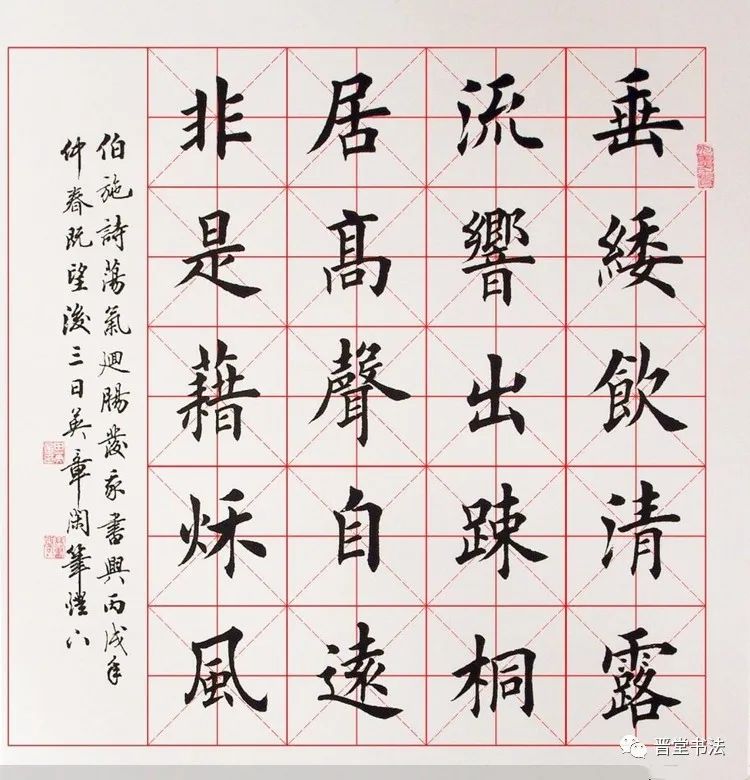 垂緌飲清露
流響出踈桐
居高聲自遠
非是藉秌風
伯施詩蕩氣迴腸發我書興丙戌年
仲春既望後三日英章閑筆
晋堂书法